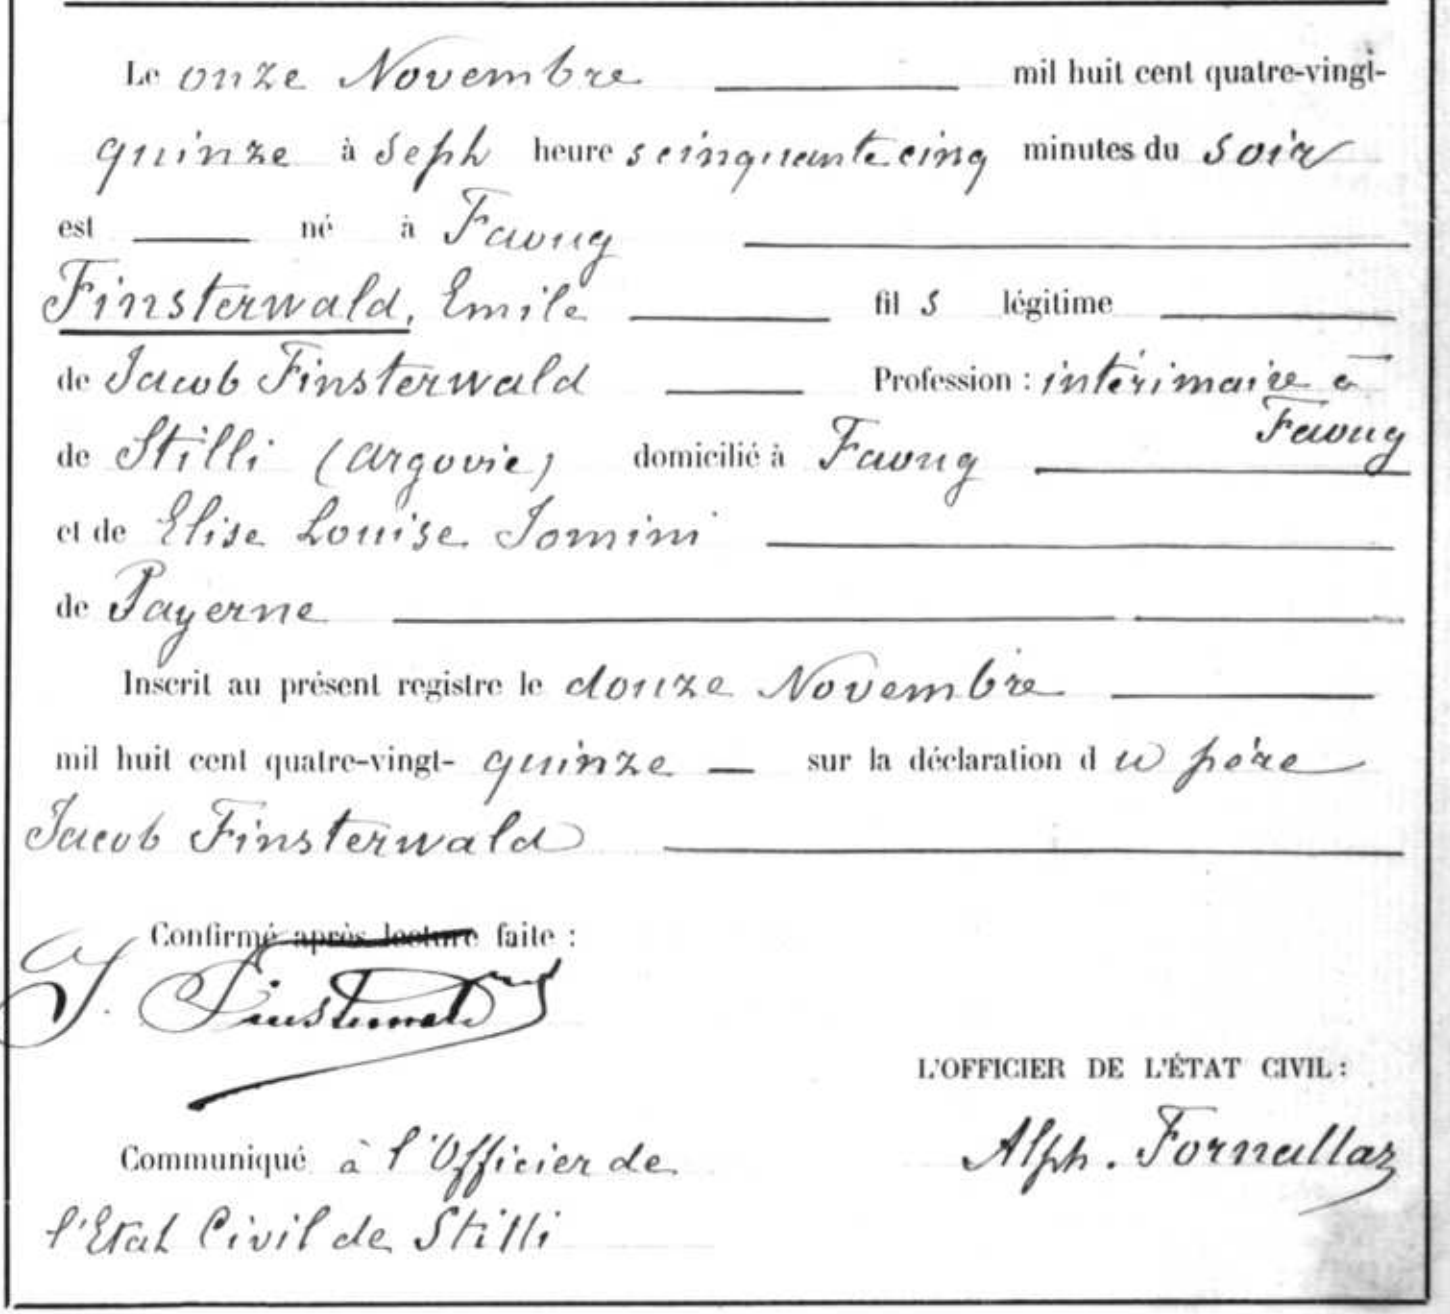 Le onze Novembre mil huit cent quatre-vingt-
quinze à Sept heure s cinquante cinq minutes du soir
est né à Faoug
Finsterwald, Emile fil s légitime
de Jacob Finsterwald Profession : intérimaire à
Faoug
de Stilli (Argovie) domicilié à Faoug
et de Elise Louise Jomini
de Payerne
Inscrit au présent registre le douze Novembre
mil huit cent quatre-vingt- quinze sur la déclaration d u père
Jacob Finsterwald
Confirmé après lecture faite :
J. Finsterwald
L'OFFICIER DE L'ÉTAT CIVIL :
Alph. Fornallaz
Communiqué à l'Officier de
l'Etat Civil de Stilli